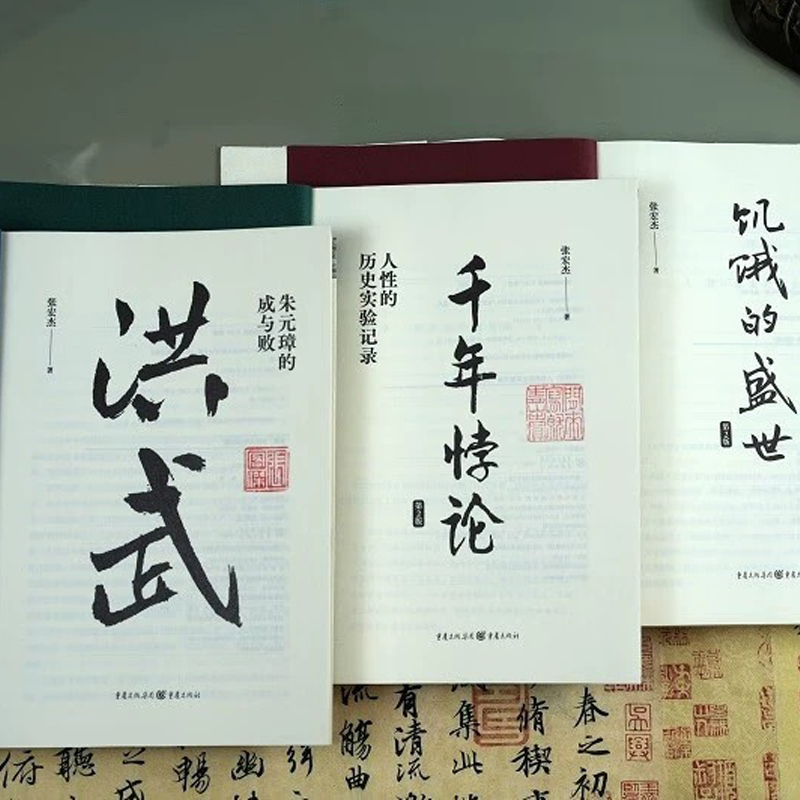 洪武
朱元璋的
成与败
张宏杰
著
重庆出版集团 重庆出版社
千年悖论
第2版
人性的
历史实验记录
张宏杰
著
重庆出版集团 重庆出版社
饥饿的盛世
第2版
张宏杰
著
重庆出版集团 重庆出版社
春之初
脩稧
集此
有清流激
流觴曲
幽
暢
聽
俯